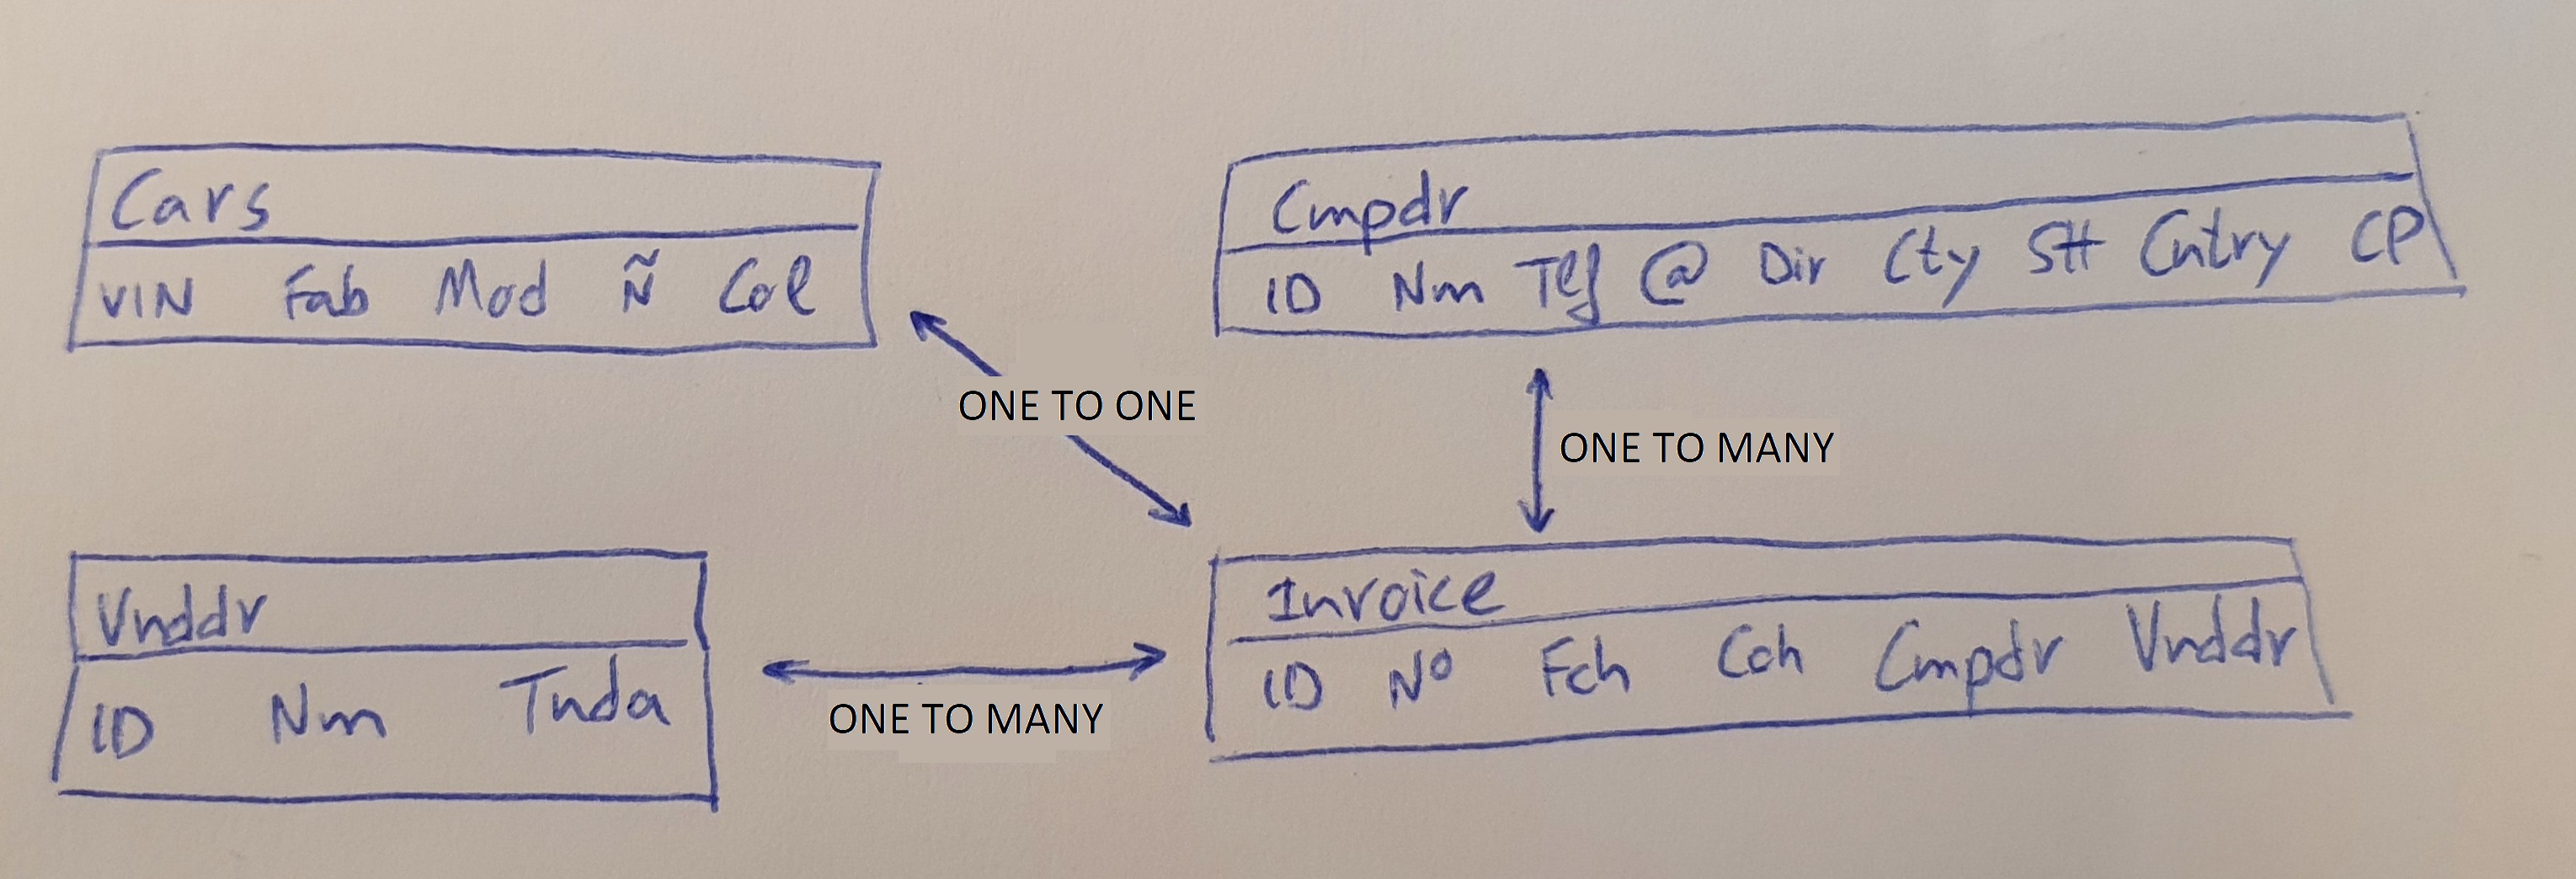 Cars
VIN Fab Mod Ñ Col
Cmpdr
ID Nm Tlf @ Dir Cty Stt Cntry CP
ONE TO ONE
ONE TO MANY
Vnddr
ID Nm Tnda
ONE TO MANY
Invoice
ID Nº Fch Coh Cmpdr Vnddr